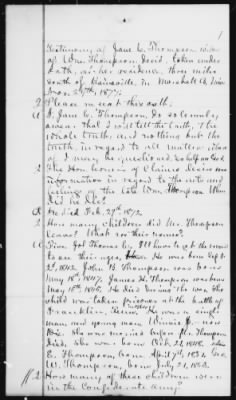 1
Testimony of Jane C. Thompson widow
of Wm. Thompson, decd. taken under
oath, at her residence, three miles
south of
Nov. 27th, 1877:
Q Please repeat this oath:
A I, Jane C. Thompson, do solemnly
swear that I will tell the truth, the
whole truth, and nothing but the
truth, in regard to all matters
of I may be questioned, so help me God.
Q The Hon. Comrs. of Claims desire
information in regard to the acts and
feelings of the late Wm. Thompson. When
did he die?
A He died Feb. 27th 1872.
Q How many children did Mr. Thompson
leave? What are their names?
A Five. Joel Thomas
to see their ages. He was born Sept
2d, 1842. John B. Thompson was born
May 18th 1847. James H. Thompson was born
May 18th, He died during the war. The
child was taken prisoner at the battle of
Franklin, Tenn. He was a single
man and young man. now
She was married before Mr. Thompson
died. She was born Oct. 22, 1848.
E. Thompson, born April 7th, 1852. Geo
W. Thompson, born July 21, 1853.
Q How many of these children were
in the Confederate Army?